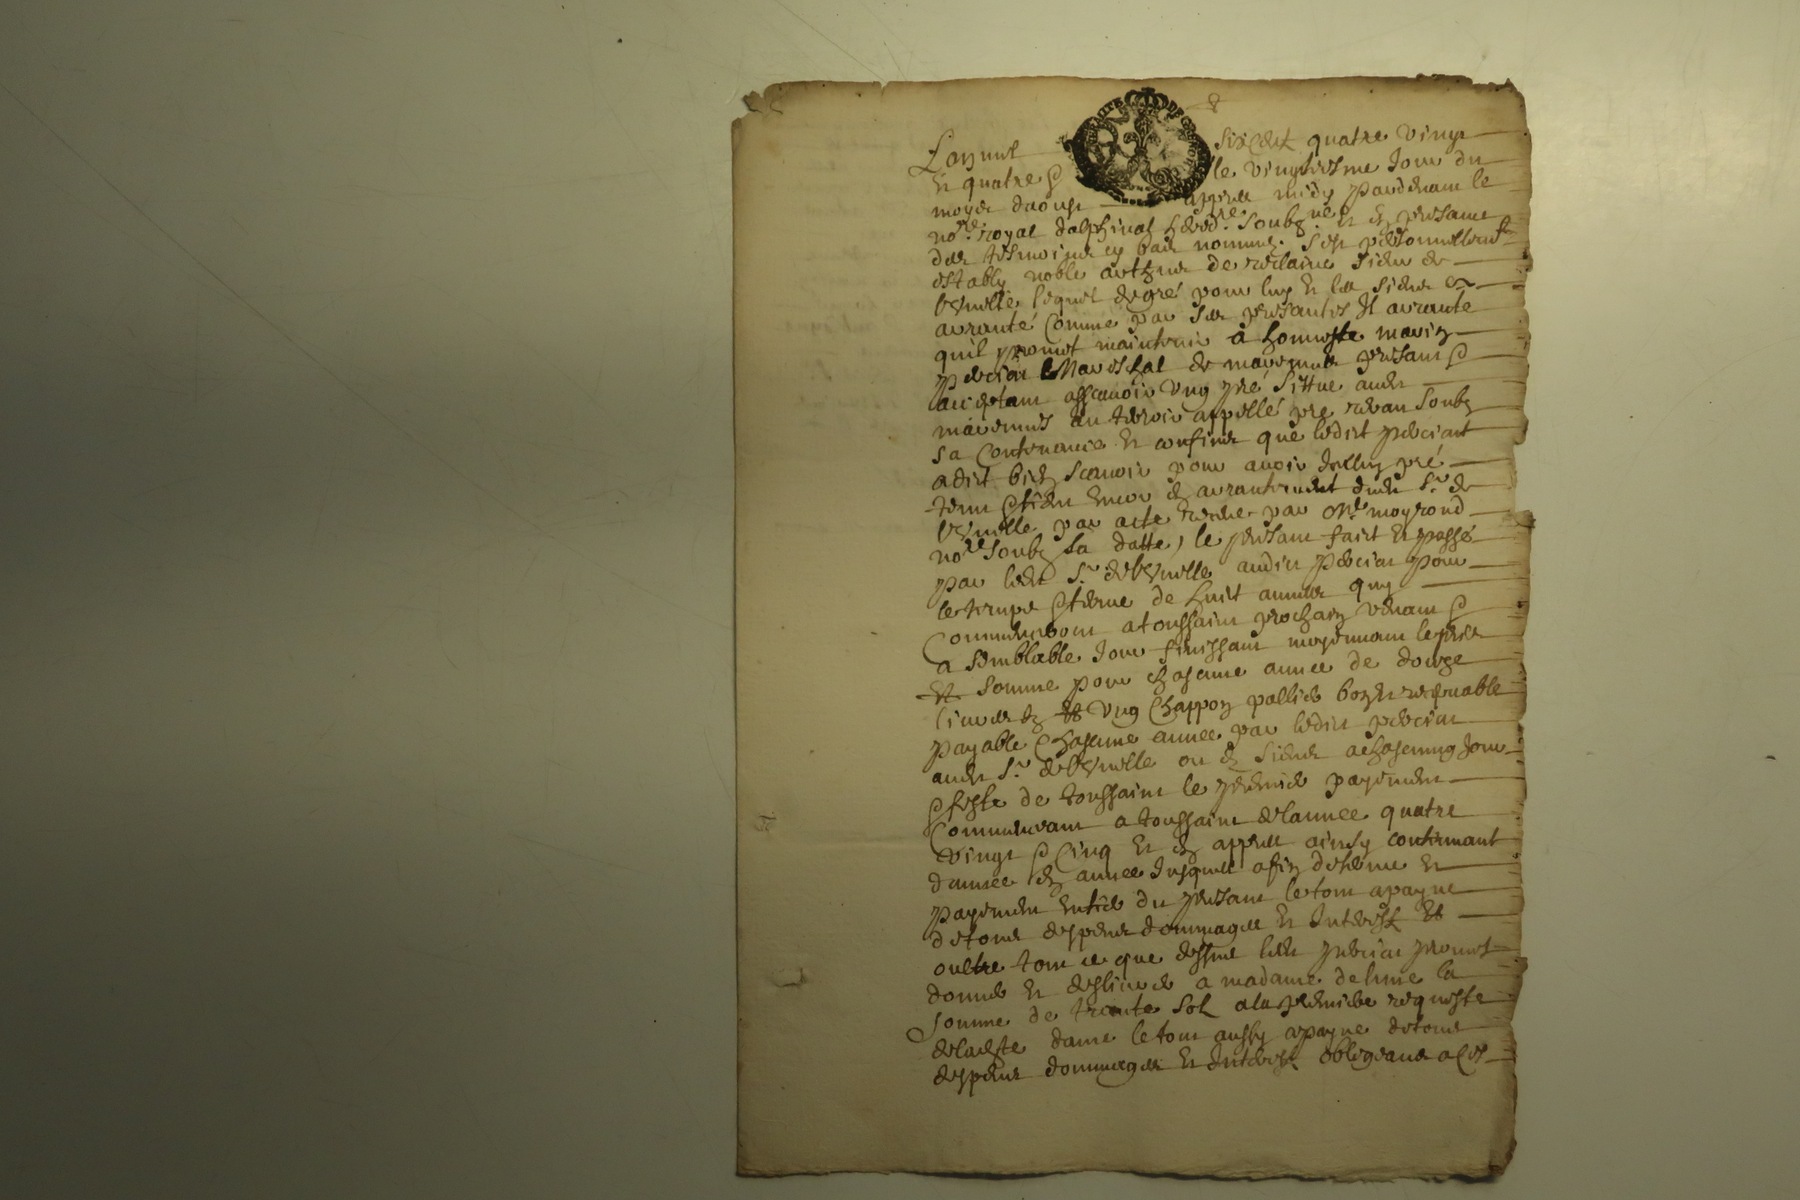 Lan mil six cent quatre vingt
et quatre & le vingtiesme Jour du
moys daoust appres midy pardevant le
no.re royal dalphinal hered.re soubz.né et en presance
des tesmoings cy bas nommez. Sest personnellem.t
estably noble arthur de sieur de
lequel de gré pour luy et les siens a
arranté comme par ses presantes Il arrante
quil promet maintenir a honneste
Mareschal de presant &
acceptant assavoir ung pré sittué audit
au terroir appellé pré soubz
sa contenance et confins que ledict
a dict bien scavoir pour avoir Icelluy pré
tenu en arrantement dudit S.r de
par acte receu par M.e moyroud
no.re soubz sa datte, le presant faict et passé
par ledit S.r de audict pour
le temps & terme de huict années quy
Commenceront a toussaint prochain venant &
a semblable Jour finissant moyennant le prix
et somme pour chascune année de douze
livres et ung Chappon bon et recepvable
payable Chascune année par ledict
audit S.r de ou es siens a chascung Jour
& feste de toussaint le premier payement
Commenceant a toussaint de lannée quatre
vingt & Cinq et en appres ainsy continuant
dannée en année Jusques a fin de terme et
payement entier du presant le tout a payne
de tous despens dommages et Interestz et
oultre tout ce que dessus ledit promet
donner et deslivrer a madame de la
somme de trante solz a la premiere requeste
de ladicte dame le tout aussy a payne de tous
despens dommages et Interestz obligeant a ces